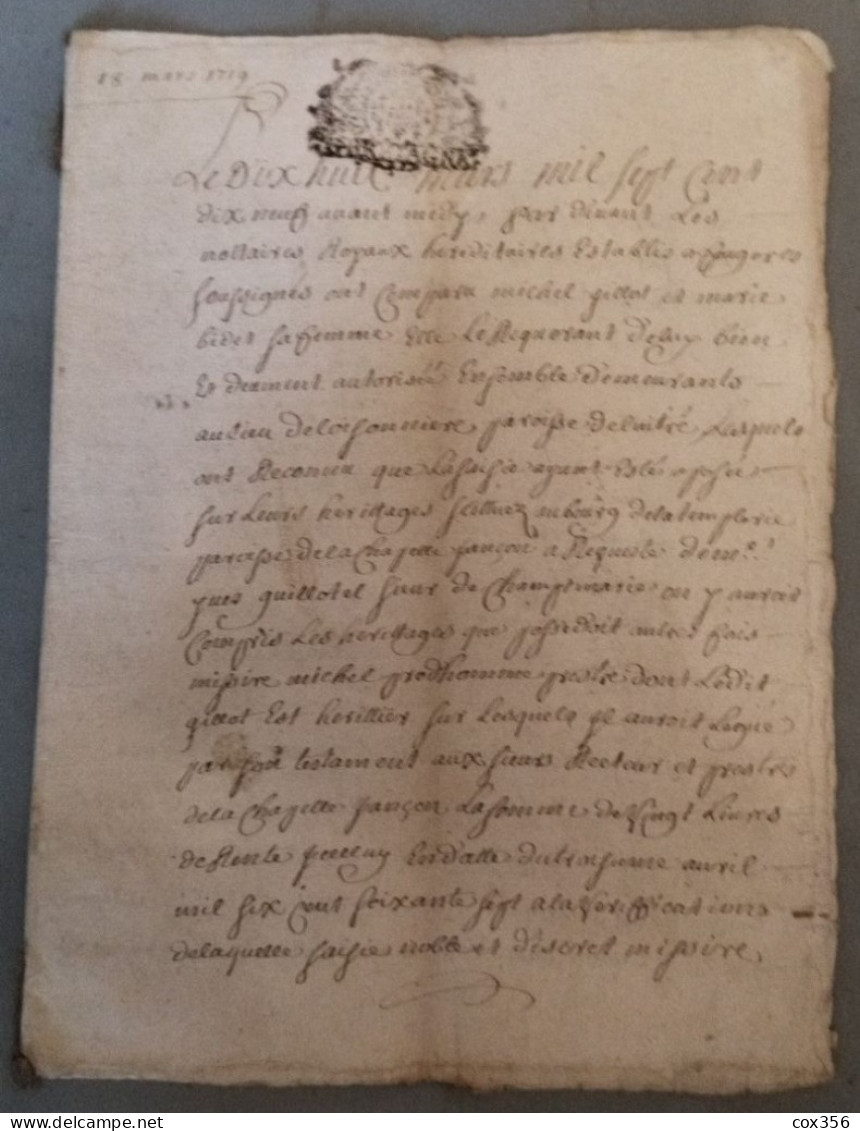 18 mars 1719
Le dix huit mars mil sept cent
dix neuf avant midy, par devant Les
nottaires Royaux hereditaires Establis a fougeres
soussignes ont comparu michel gillot et marie
bidet sa femme Elle Le Requerant de luy bien
Et deument autorisée Ensemble demeurants
au lieu de paroisse de laitré, Lesquels
ont Reconnu que La saisie ayant Esté aposée
sur Leurs herittages scittuez au bourg de la templerie
paroisse de la Chapelle Janson a Requeste de
yves guillotel sieur de Champ marie on y auroit
Compris Les herittages que possedoit autre fois
missire michel prodhomme prestre dont Ledit
gillot Est herittier sur Lesquels il auroit Legüé
par son testament aux sieurs Recteur et prestres
de la Chapelle Janson La somme de Vingt Livres
de Rente En datte du troisieme avril
mil six Cent soixante sept a la Verification
de laquelle saisie noble et discret missire,
cox356